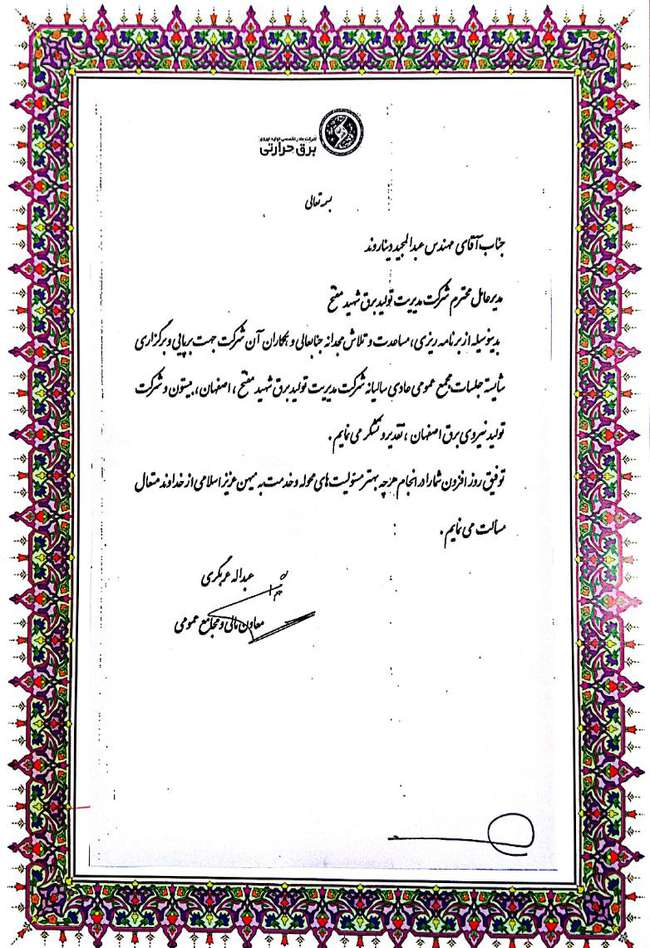 شرکت مادر تخصصی تولید نیروی
برق حرارتی
بسمه تعالی
جناب آقای مهندس عبدالمجید دیناروند
مدیرعامل محترم شرکت مدیریت تولید برق شهید مفتح
بدینوسیله از برنامه ریزی، مساعدت و تلاش مجدانه جنابعالی و همکاران آن شرکت جهت برپایی و برگزاری
شایسته جلسات مجمع عمومی عادی سالیانه شرکت مدیریت تولید برق شهید مفتح ، اصفهان ، بیستون و شرکت
تولید نیروی برق اصفهان ، تقدیر و تشکر می نمایم .
توفیق روز افزون شما را در انجام هر چه بهتر مسئولیت های محوله و خدمت به میهن عزیز اسلامی از خداوند متعال
مسالت می نمایم .
عبداله
معاون مالی و مجامع عمومی